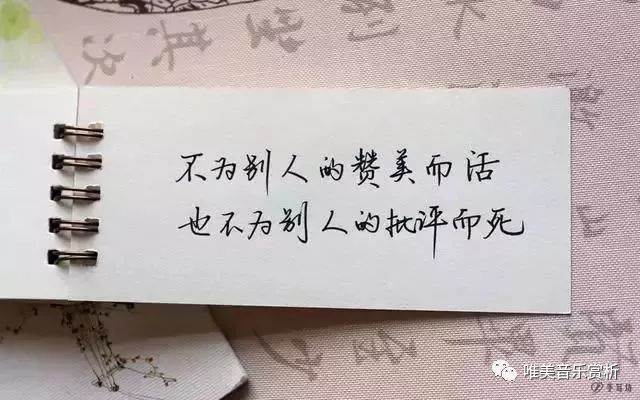 不为别人的赞美而活
也不为别人的批评而死
唯美音乐赏析